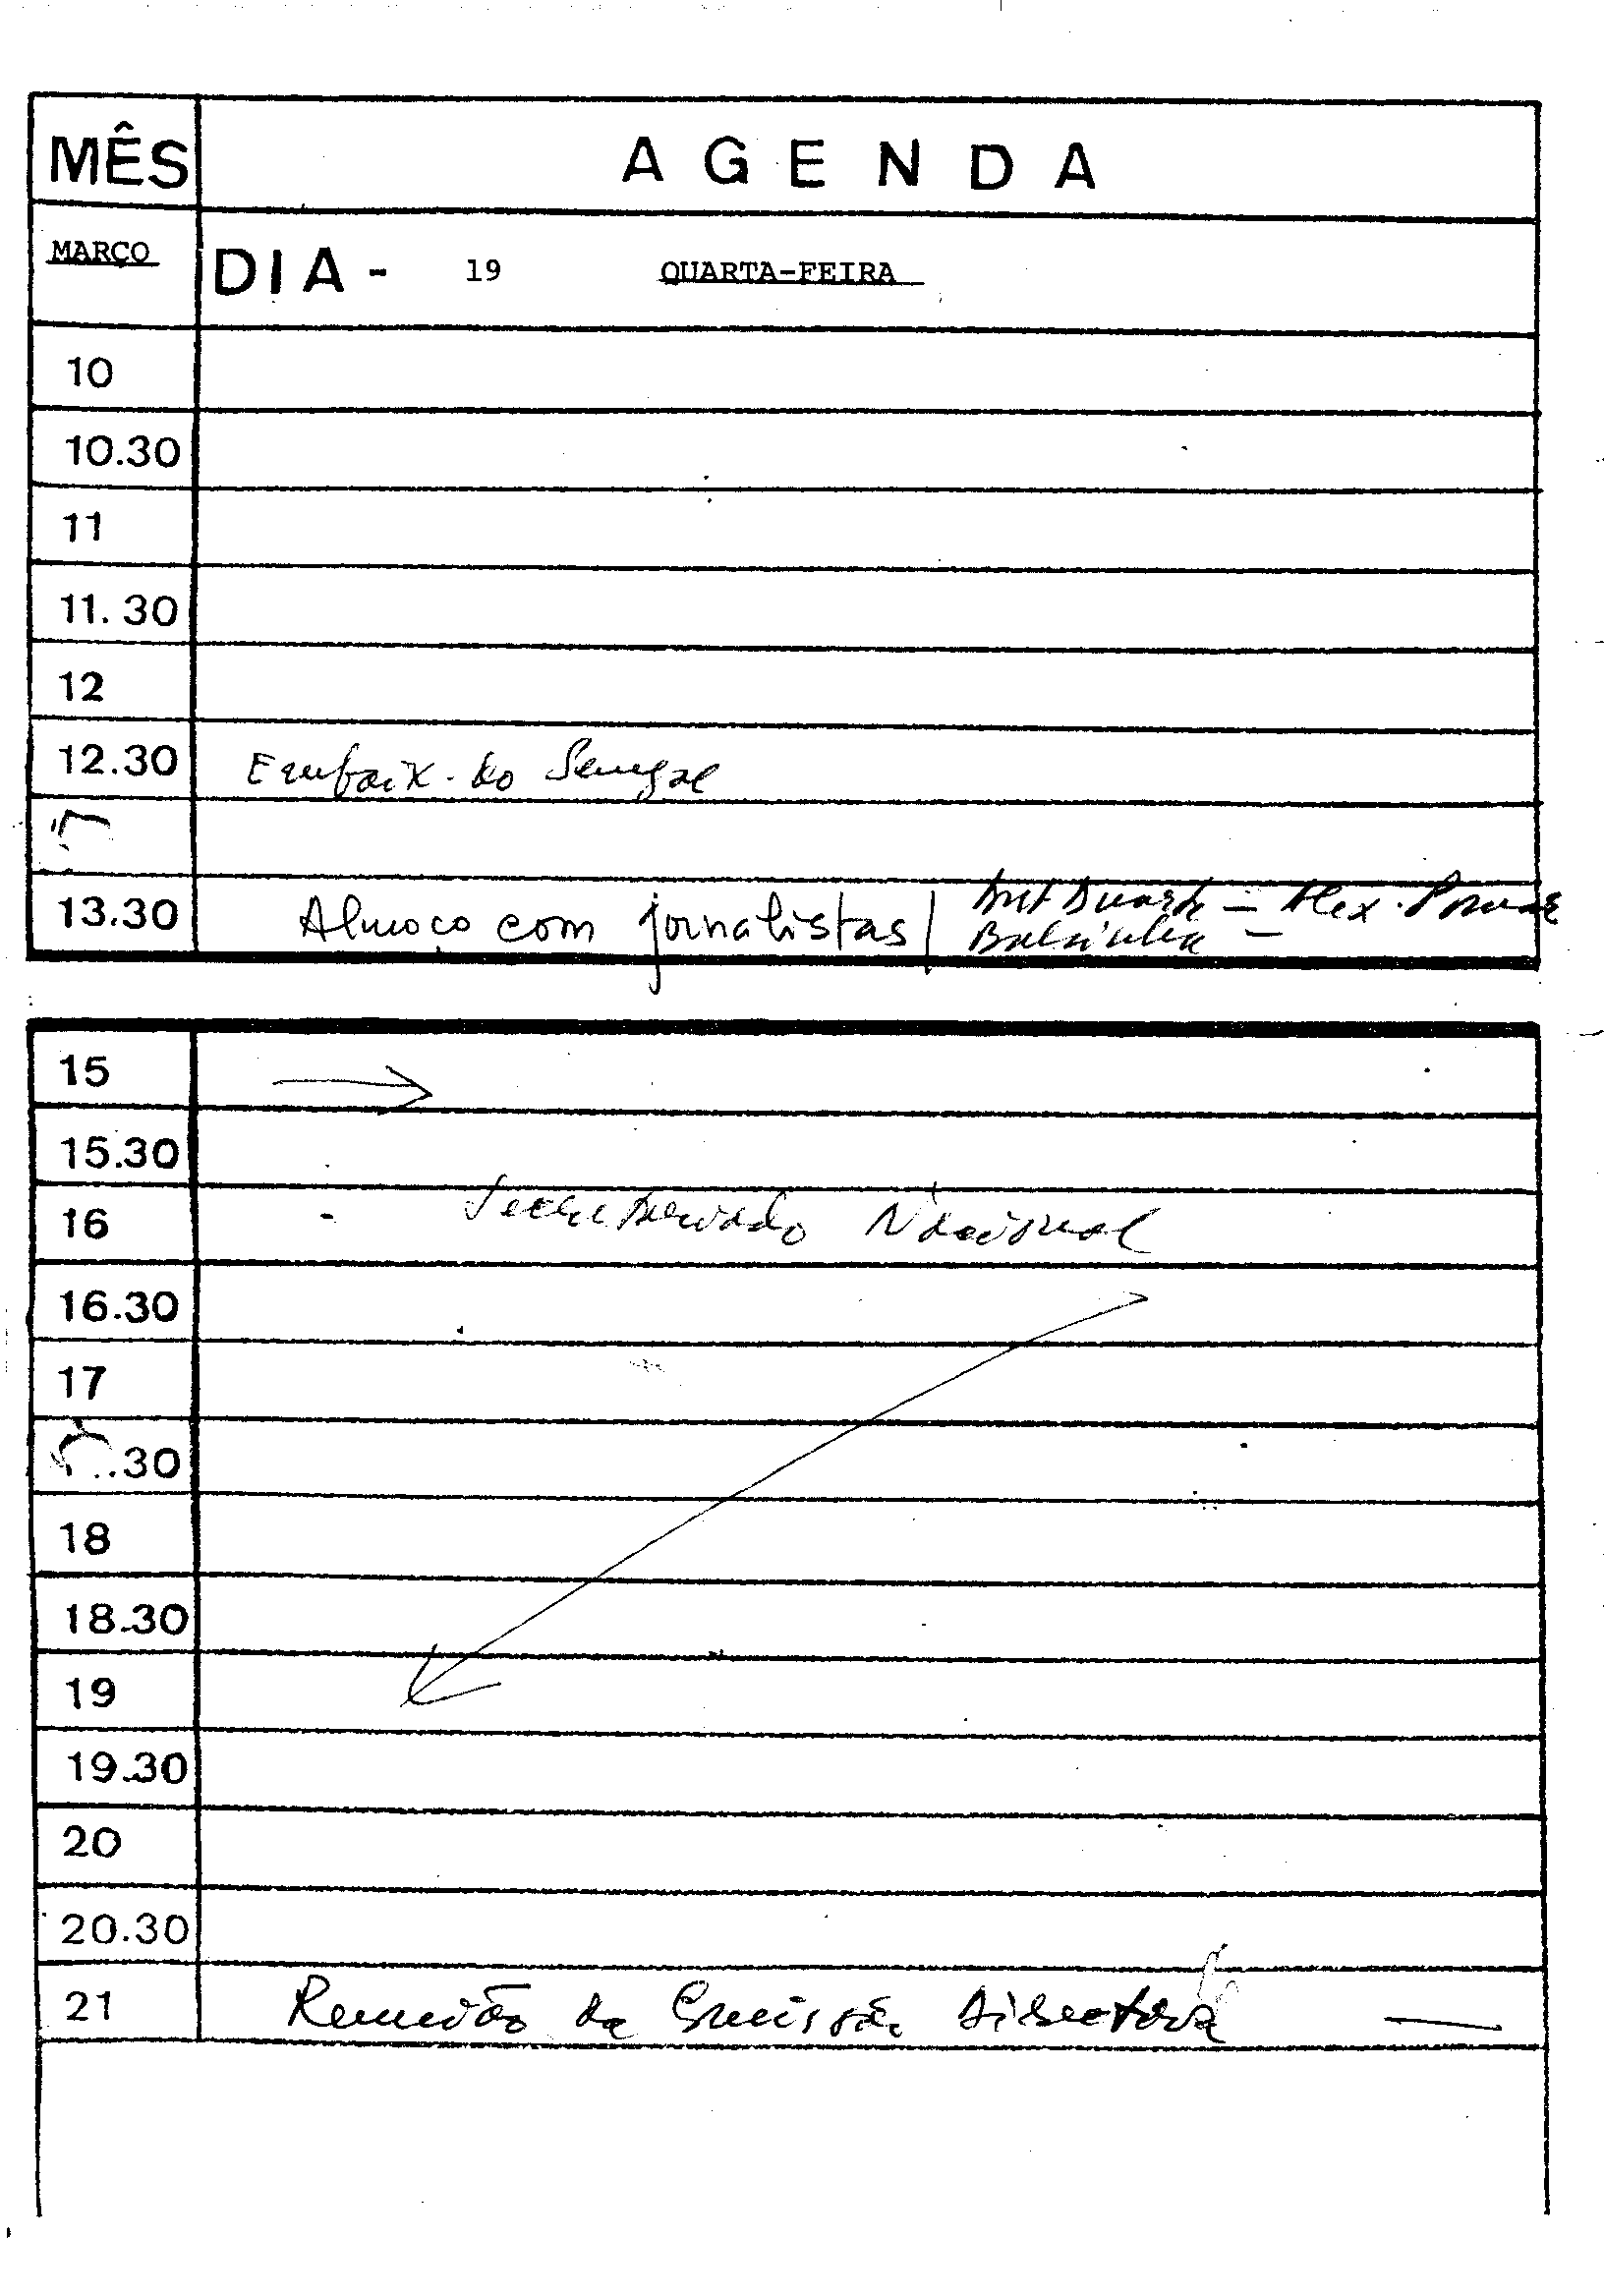 MÊS AGENDA
MARÇO DIA - 19 QUARTA-FEIRA
10
10.30
11
11.30
12
12.30 Embaix. do Senegal
13.30 Almoço com jornalistas Duarte - Alex.
15
15.30
16 Secretariado Nacional
16.30
17
.30
18
18.30
19
19.30
20
20.30
21 Reunião da Comissão Directiva